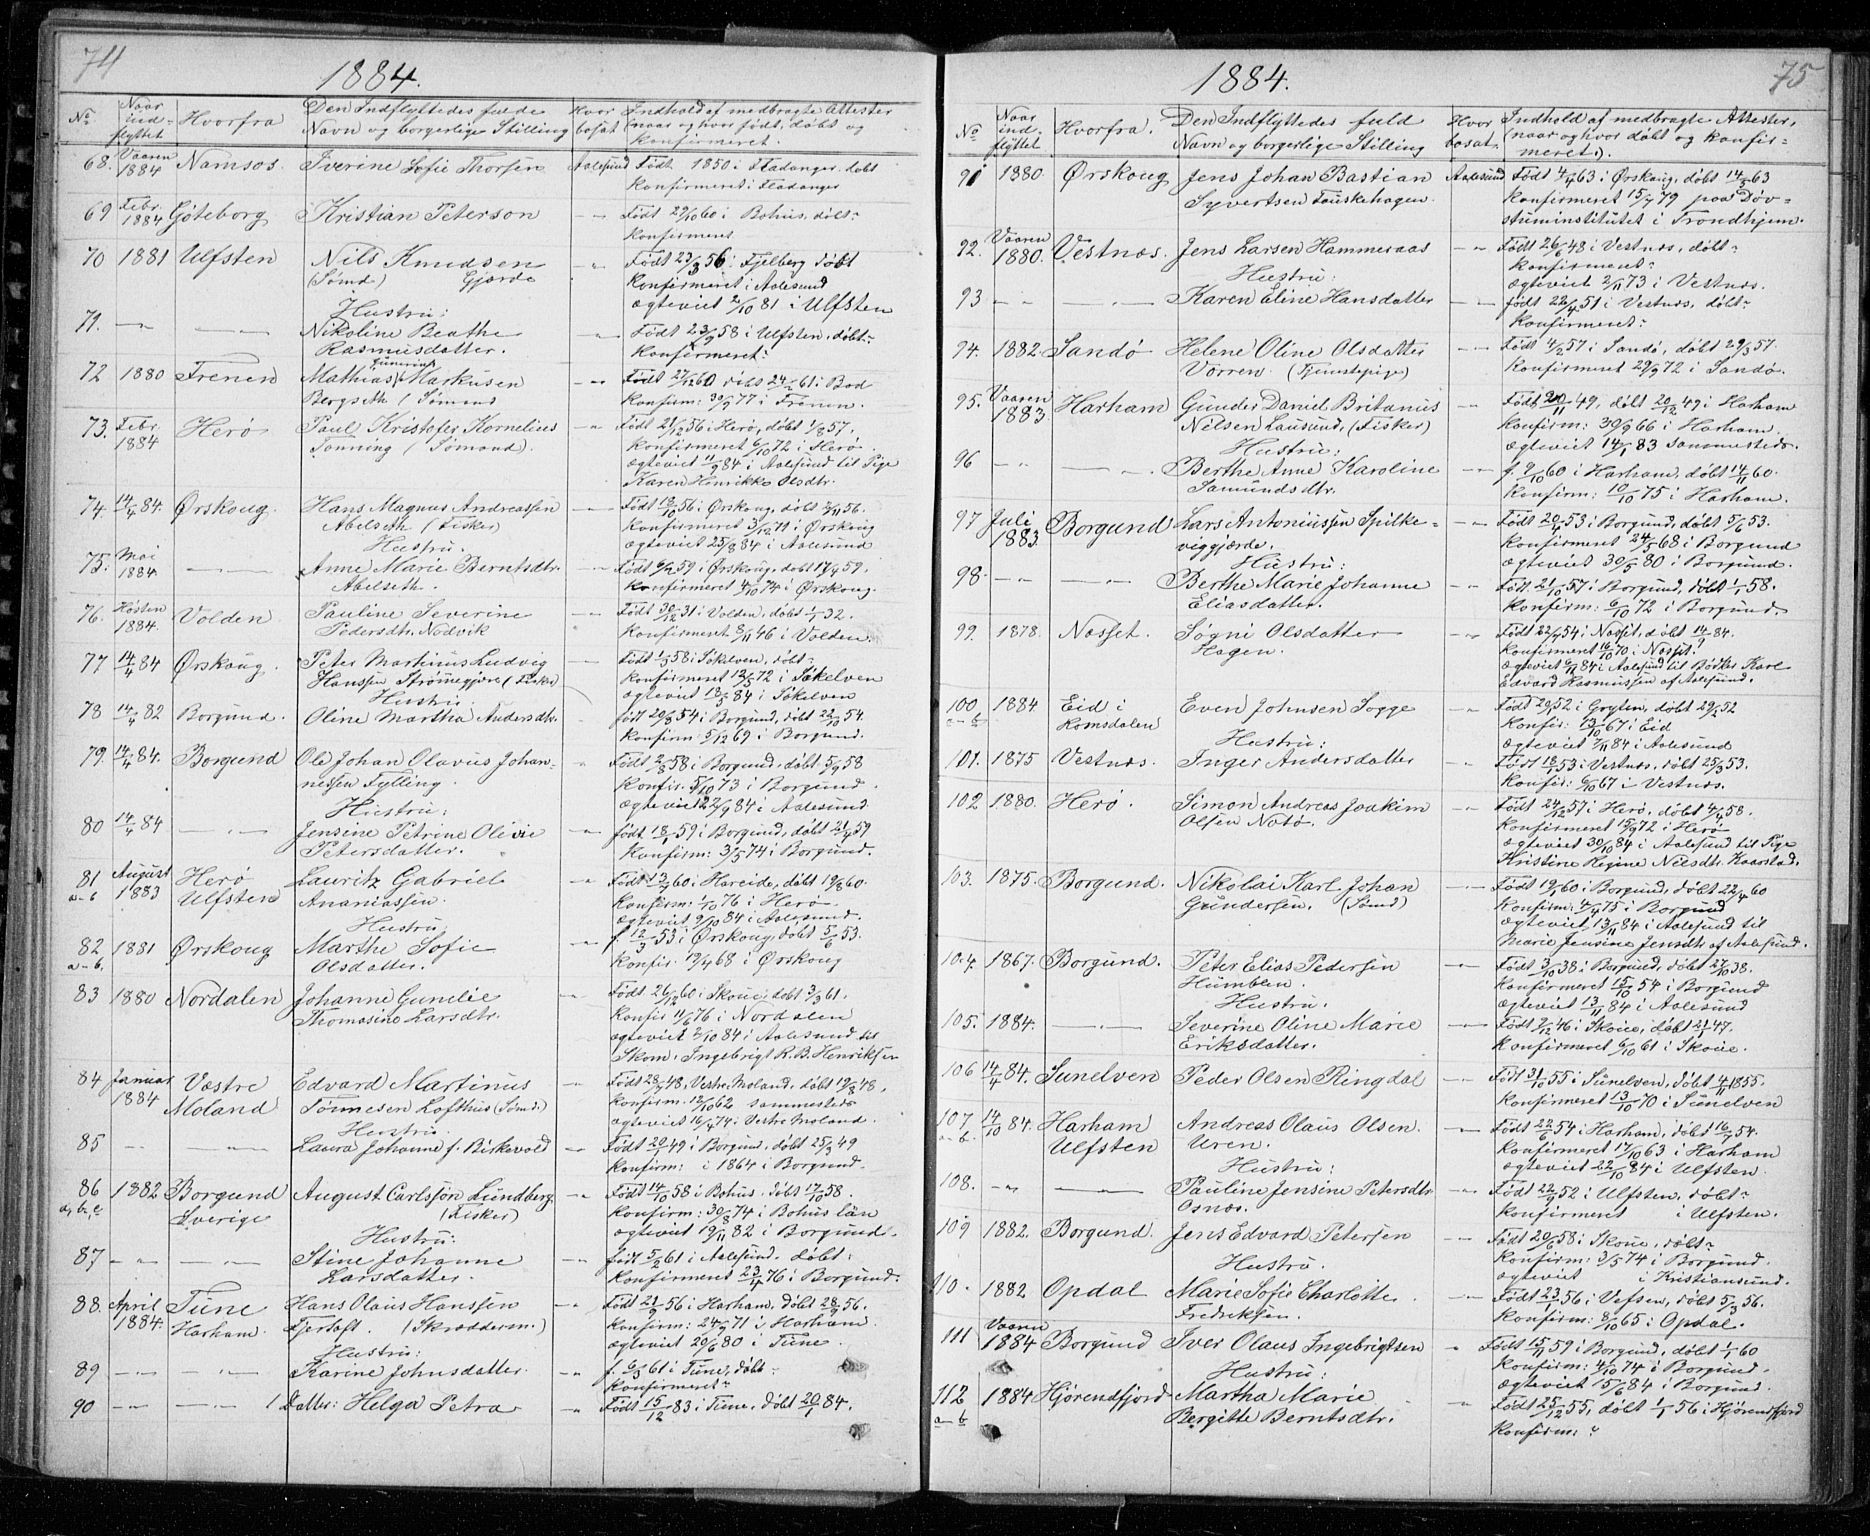 74
1884.
No. Naar ind- flyttet Hvorfra Den Indflyttedes fulde Navn og borgerlige Stilling Hvor bosat Indhold af medbragte Attester (naar og hvor født, døbt og konfirmeret.
68. Vaaren 1884 Namsos. Iverine Sofie Thorsen Aalesund Født 1850 i Fladanger. døbt
konfirmeret i Fladanger
69 Febr. 1884 Göteborg Kristian Peterson –"– Født 29/10 60 i Bohus, døbt ~
konfirmeret
70 1881 Ulfsten Nils Knudsen –"– Født 23/3 56 i Fjelberg døbt
(Sømd) Gjærde konfirmeret i Aalesund
ægteviet 2/10 81 i Ulfsten
Hustru:
71. –"– –"– Nikoline Beathe –"– Født 23/9 58 i Ulfsten, døbt ~
Rasmusdatter. konfirmeret ~
72 1880 Frenen Mathias Gunerius Markusen –"– Født 27/12 60 døbt 24/2 61 i Bod
Bergseth (Sømand konfirm: 30/9 77 i Frenen
73. Febr. 1884 Herø Paul Kristofer Kornelius –"– Født 21/12 56 i Herø, døbt 1/8 57.
Tonning (Sømand). konfirmeret 6/10 72 i Herø
ægteviet 11/9 84 i Aalesund til Pige
Karen Henrikke Olsdtr.
74. 14/4 84 Ørskoug. Hans Magnus Andreassen –"– Født 18/10 56 i Ørskoug, døbt 2/11 56.
Abelseth (Fisker) konfirmeret 3/12 71 i Ørskoug
Hustru. ægteviet 25/8 84 i Aalesund
75. Mai 1884. –"– Anne Marie Berntsdtr. –"– Født 9/2 59 i Ørskoug, døbt 17/4 59.
Abelseth. konfirmeret 4/10 74 i Ørskoug.
76. Høsten 1884. Volden Pauline Severine –"– Født 30/12 31 i Volden, døbt 1/1 32.
Pedersdtr. Nodvik konfirmeret 8/11 46 i Volden.
77 14/4 84 Ørskoug. Peter Martinus Ludvig –"– Født 1/5 58 i Søkelven, døbt ~
Hansen Strømegjære (Fisker) konfirmeret 12/5 72 i Søkelven
Hustru: ægteviet 18/5 84 i Søkelven
78 14/4 82 Borgund. Oline Martha Andersdtr. født 20/8 54 i Borgund, døbt 22/10 54.
konfirm 5/12 69 i Borgund.
79. 14/4 84. Borgund Ole Johan Olavus Johan- –"– Født 2/8 58 i Borgund, døbt 5/9 58
nessen Fylling. konfir. 5/10 73 i Borgund.
ægteviet 22/9 84 i Aalesund
Hustru:
80 14/4 84 –"– Jensine Petrine Olivie –"– født 18/1 59 i Borgund, døbt 21/4 59
Petersdatter. konfirm: 3/5 74 i Borgund.
81 a-b August 1883 Herø Ulfsten Lauritz Gabriel –"– Født 13/7 60 i Hareide, døbt 19/8 60.
Ananiassen. konfirm: 1/10 76 i Herø
Hustru; ægteviet 9/10 84 i Aalesund.
82 a-b. 1881 Ørskoug Marthe Sofie –"– f. 12/3 53 i Ørskoug, døbt 5/6 53.
Olsdatter. konfir. 19/4 68 i Ørskoug
83 1880 Nordalen Johanne Gunelie Født 26/12 60 i Skoue, døbt 3/3 61.
Thomasine Larsdtr. konfir 11/6 76 i Nordalen
ægteviet 2/10 84 i Aalesund til
Skom. Ingebrigt R. B. Henriksen
84 Januar 1884 Vestre Moland Edvard Martinus –"– Født 28/7 48, Vestre Moland, døbt 19/8 48.
Tønnesen Lofthus (Sømd.) konfirm. 12/10 62 sammesteds
Hustru. ægteviet 16/4 74 i Vestre Moland.
85 – –"– Laura Johanne f. Biskevold –"– Født 20/1 49 i Borgund, døbt 25/3 49
konfirm: i 1864 i Borgund.
86 a, b, c 1882 Borgund Sverige August Carlsson Lundberg –"– Født 14/10 58 i Bohus. døbt 17/10 58.
(Fisker) konfirm: 30/8 74 i Bohus län
ægteviet 19/11 82 i Borgund.
Hustru:
87 –"– –"– Stine Johanne –"– født 5/2 61 i Aalesund. døbt:
Larsdatter. konfirmeret 23/4 76 i Borgund.
88. April 1884. Tune Harham. Hans Olaus Hanssen –"– Født 21/9 56 i Harham, døbt 28/9 56.
Fjertoft. (Skræddersv.) konfirm: 24/9 71 i Harham.
Hustru: ægteviet 20/6 80 i Tune.
89 –"– –"– Karine Johnsdatter. –"– f. 6/3 61 i Tune, døbt
konfirmeret ~
90 –"– –"– Datter: Helga Petra –"– Født 15/12 83 i Tune, døbt 20/1 84.
75
1884.
No. Naar ind- flyttet Hvorfra. Den Indflyttedes fuld Navn og borgerlige Stilling Hvor bosat Indhold af medbragte Attester, (naar og hvor døbt og konfir- meret).
91 1880 Ørskoug Jens Johan Bastian Aalesund Født 4/4 63 i Ørskoug, døbt 14/5 63
Syvertsen Fauskehagen. konfirmeret 15/7 79 paa Døv-
stuminstitutet i Trondhjem.
92. Vaaren 1880. Vestnæs. Jens Larsen Hammeraas –"– Født 26/6 48 i Vestnæs, døbt ~
Hustru: konfirmeret ~
ægteviet 2/11 73 i Vestnæs.
93 –"– –"– Karen Eline Hansdatter –"– født 22/4 51 i Vestnæs, døbt ~
konfirmeret ~
94. 1882. Sandø Helene Oline Olsdatter –"– Født 4/2 57 i Sandø, døbt 29/3 57.
Vorren. (Tjenestepige) konfirmeret 29/9 72 i Sandø.
95. Vaaren 1883. Harham Gunder Daniel Britanus –"– Født 20/11 49, døbt 20/12 49 i Harham
Nilsen Lausund, (Fisker) konfirm: 30/9 66 i Harham.
Hustru: ægteviet 14/1 83 sammesteds.
96 –"– –"– Berthe Anne Karoline –"– f. 9/10 60 i Harham, døbt 14/11 60.
Samundsdtr. konfirm: 10/10 75 i Harham.
97 Juli 1883 Borgund Lars Antoniussen Spilke- –"– Født 20/4 53 i Borgund, døbt 5/6 53.
viggjærde. konfirmeret 24/5 68 i Borgund
Hustru: ægteviet 30/5 80 i Borgund.
98. –"– –"– Berthe Marie Johanne –"– Født 21/10 57 i Borgund, døbt 1/1 58.
Eliasdatter. konfirm: 6/10 72 i Borgund.
99. 1878. Næsset. Søgni Olsdatter –"– Født 22/7 54 i Næsset, døbt 14/9 84.
Hagen. konfirmeret 16/10 70 i Næsset.
ægteviet 6/11 84 i Aalesund til Bødker Karl
Edvard Rasmussen af Aalesund.
100 a-b 1884 Eid i Romsdalen Even Johnsen Sogge –"– Født 20/1 52 i Grytten, døbt 29/2 52
konfir: 13/10 67 i Eid
Hustru: ægteviet 7/11 84 i Aalesund
101. 1875 Vestnæs. Inger Andersdatter –"– Født 18/1 53 i Vestnæs, døbt 25/3 53.
konfir: 6/10 67 i Vestnæs.
102 1880. Herø. Simon Andreas Joakim Født 24/12 57 i Herø, døbt 4/4 58.
Olsen Notø. konfirmeret 15/9 72 i Herø
ægteviet 30/10 84 i Aalesund til Pige
Kristine Regine Nilsdtr. Kaarstad.
103. 1875. Borgund. Nikolai Karl Johan –"– Født 19/1 60 i Borgund, døbt 22/4 60
Gundersen. (Sømd) konfirm: 4/4 75 i Borgund
ægteviet 13/11 84 i Aalesund til
Marie Jensine Jensdtr. af Aalesund.
104. 1867. Borgund. Peter Elias Pedersen –"– Født 3/10 38 i Borgund, døbt 27/10 38.
Humblen. konfirmeret 15/10 54 i Borgund
Hustru. ægteviet 13/11 84 i Aalesund
105. 1884. –"– Severine Oline Marie –"– Født 9/12 46 i Skoue, døbt 21/1 47.
Eriksdatter. konfirmeret 6/10 61 i Skoue.
106 14/4 84. Sunelven Peder Olsen Ringdal –"– Født 31/10 55 i Sunelven, døbt 4/11 1855.
konfirmeret 13/10 70 i Sunelven
107 a-b. 14/10 84. Harham Ulfsten Andreas Olaus Olsen –"– Født 22/6 54 i Harham, døbt 16/7 54.
Uren. konfirmeret 17/10 63 i Harham
Hustru: ægteviet 22/10 84 i Ulfsten.
108. –"– –"– Pauline Jensine Petersdtr. –"– Født 22/9 52 i Ulfsten, døbt ~
Osnæs. konfirmeret i Ulfsten.
109 1882. Borgund. Jens Edvard Petersen –"– Født 20/6 58 i Skoue, døbt ~
konfirm: 3/5 74 i Borgund.
Hustru. ægteviet i Kristiansund.
110. 1882 Opdal Marie Sofie Charlotte –"– Født 23/1 56 i Vefsen, døbt 5/3 56.
Fredriksen. konfirm: 8/10 65 i Opdal.
111 Vaaren 1884 Borgund Iver Olaus Ingebrigtsen –"– Født 15/11 59 i Borgund, døbt 1/1 60
konfirm: 4/10 74 i Borgund.
Hustru: ægteviet 15/6 84 i Borgund.
112 a-b 1884 Hjørendfjord Martha Marie –"– Født 25/12 55, døbt 1/1 56 i Hjørendfjord
Bergitte Berntsdtr. konfirm: ~